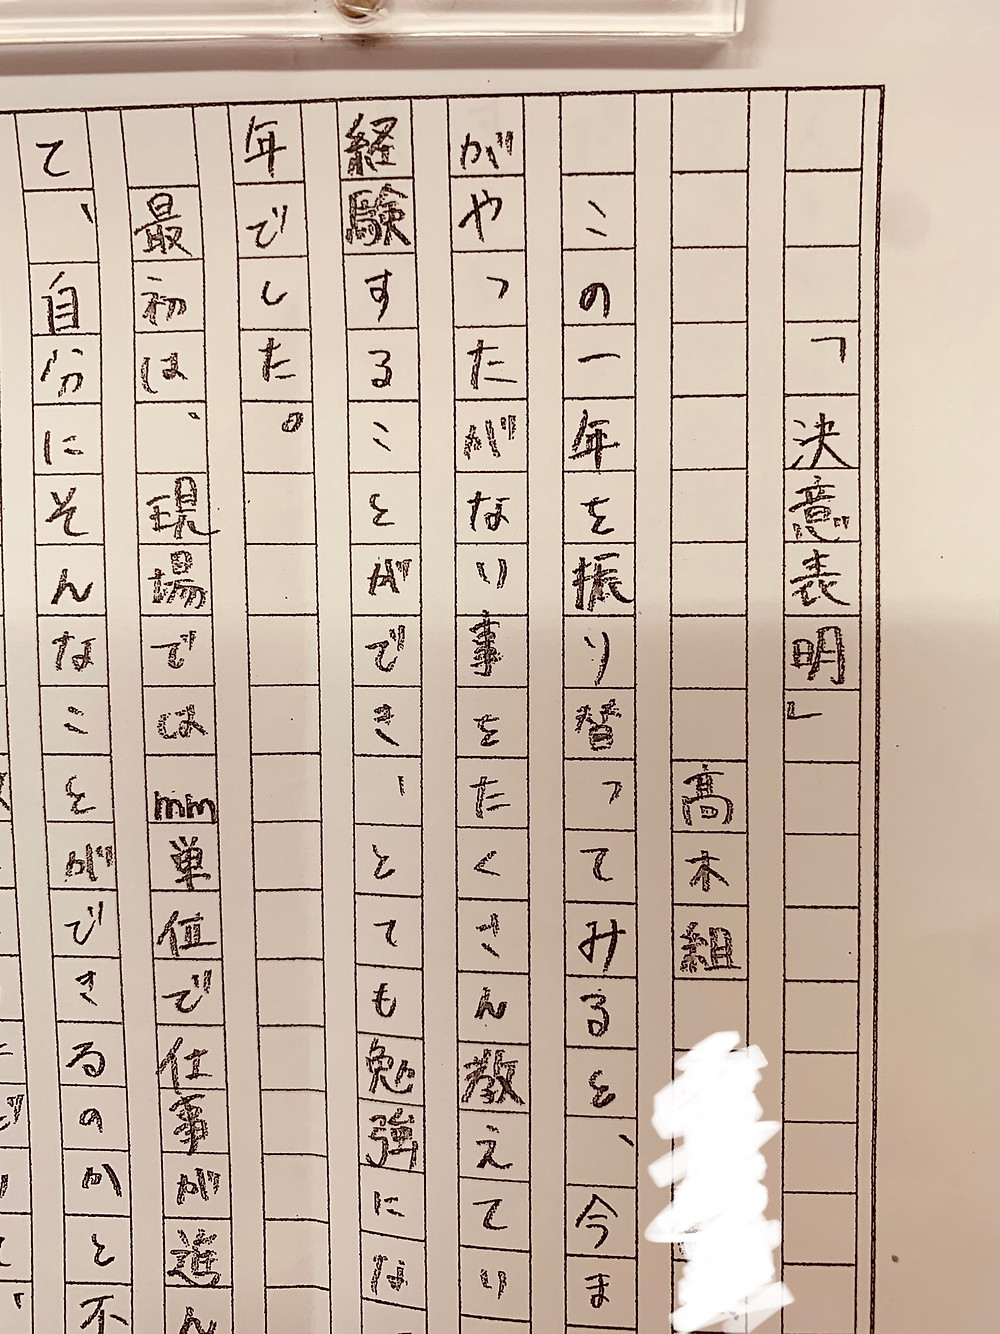 「決意表明」
高木組
この一年を振り替ってみると、今ま
がやったがない事をたくさん教えてい
経験することができ、とても勉強にな
年でした。
最初は、現場ではmm単位で仕事が進ん
て、自分にそんなことができるのかと不